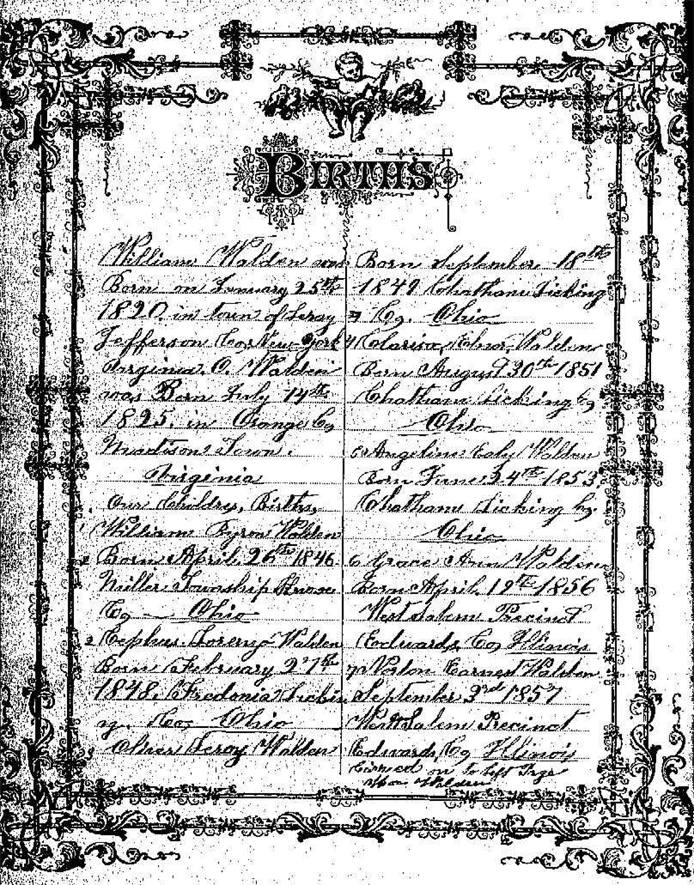 BIRTHS
William Walden was
Born on January 25th
1820 in town of Leray
Jefferson Co New York
Virginia. O. Walden
was Born July 14th
1825. in Orange Co
Madison Town.
Virginia
Our Births,
William Byron Walden
Born April 26th 1846
Miller Township Knox
Co Ohio
2 Cephus. Walden
Born February 27th
1848. Fredonia Lickin
g. Co, Ohio
3 Oliver Leroy Walden
Born September 18th
1849 Chatham Licking
Co. Ohio
4 Clarisa, Walden
Born August 30th 1851
Chatham Licking Co
Ohio
5 Angeline Walden
Born June 24th 1853,
Chatham Licking Co.
Ohio
6 Grace Ann Walden
Born April 19th 1856
West Salem Precinct
Edwards, Co Illinois
7 Earnest Walden
September 3rd 1857
West Salem Precinct
Edwards, Co Illinois
on to left Page